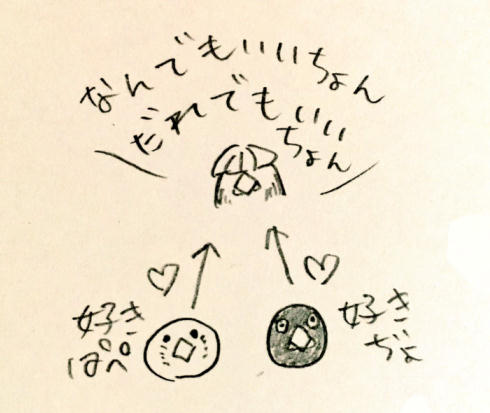 なんでもいいちょん
だれでもいい
ちょん
好き
ぱぺ
好き
ぢょ